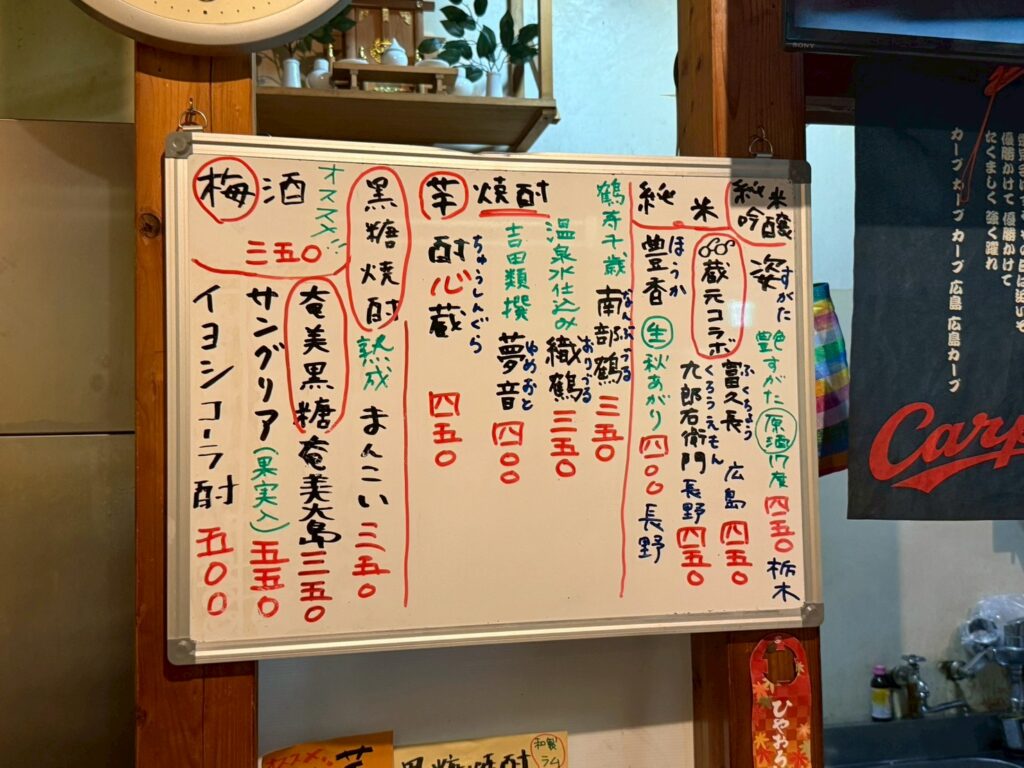 SONY
優勝かけて 優勝かけて
たくましく 強く躍れ
カープ カープ カープ広島 広島カープ
Carp
純米
吟醸
姿 すがた
艶すがた 原酒17度 四五〇 栃木
蔵元コラボ
富久長 ふくちょう 広島 四五〇
九郎右衛門 くろうえもん 長野 四五〇
純米
豊香 ほうか 生 秋あがり 四〇〇 長野
芋焼酎
鶴寿千歳 南部鶴 なんぶづる 三五〇
温泉水仕込み 織鶴 おりづる 三五〇
吉田類撰 夢音 ゆめおと 四〇〇
酎心蔵 ちゅうしんぐら 四五〇
黒糖焼酎
熟成 まんこい 三五〇
オススメ!!
奄美黒糖 奄美大島 三五〇
梅酒
三五〇
サングリア(果実入) 五五〇
イヨシコーラ酎 五〇〇
ひやおろ
オススメ!!
芋
黒糖焼酎
和製
ラム